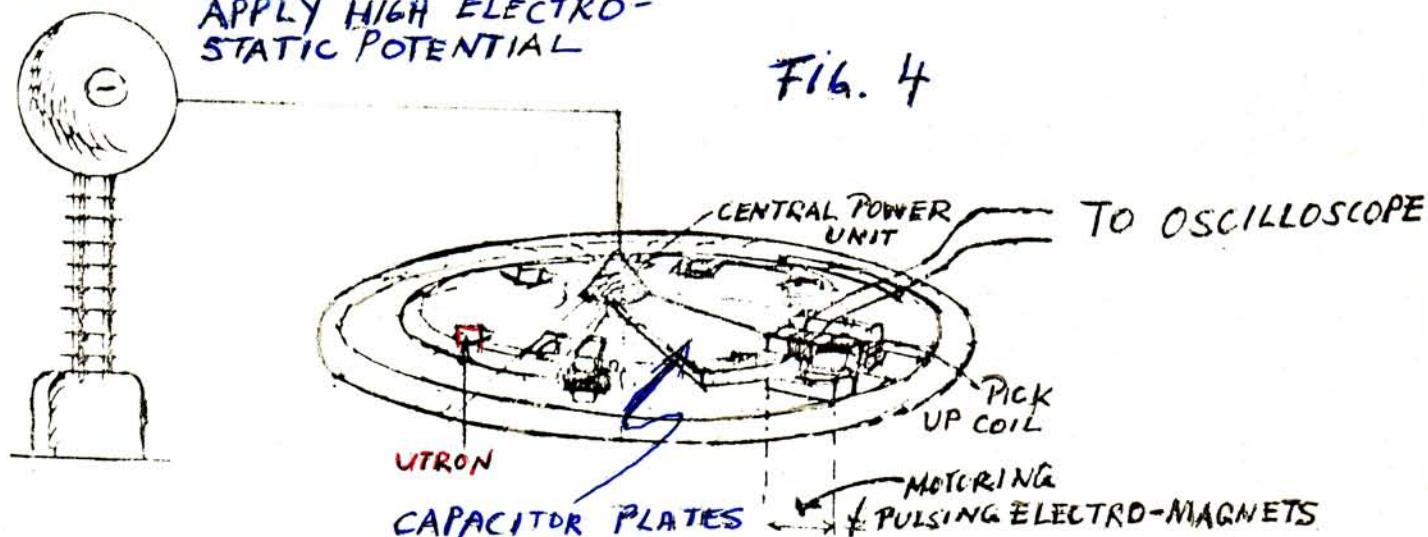 APPLY HIGH ELECTRO-
STATIC POTENTIAL
FIG. 4
CENTRAL POWER
UNIT
TO OSCILLOSCOPE
PICK
UP COIL
UTRON
MOTORING
CAPACITOR PLATES
PULSING ELECTRO-MAGNETS